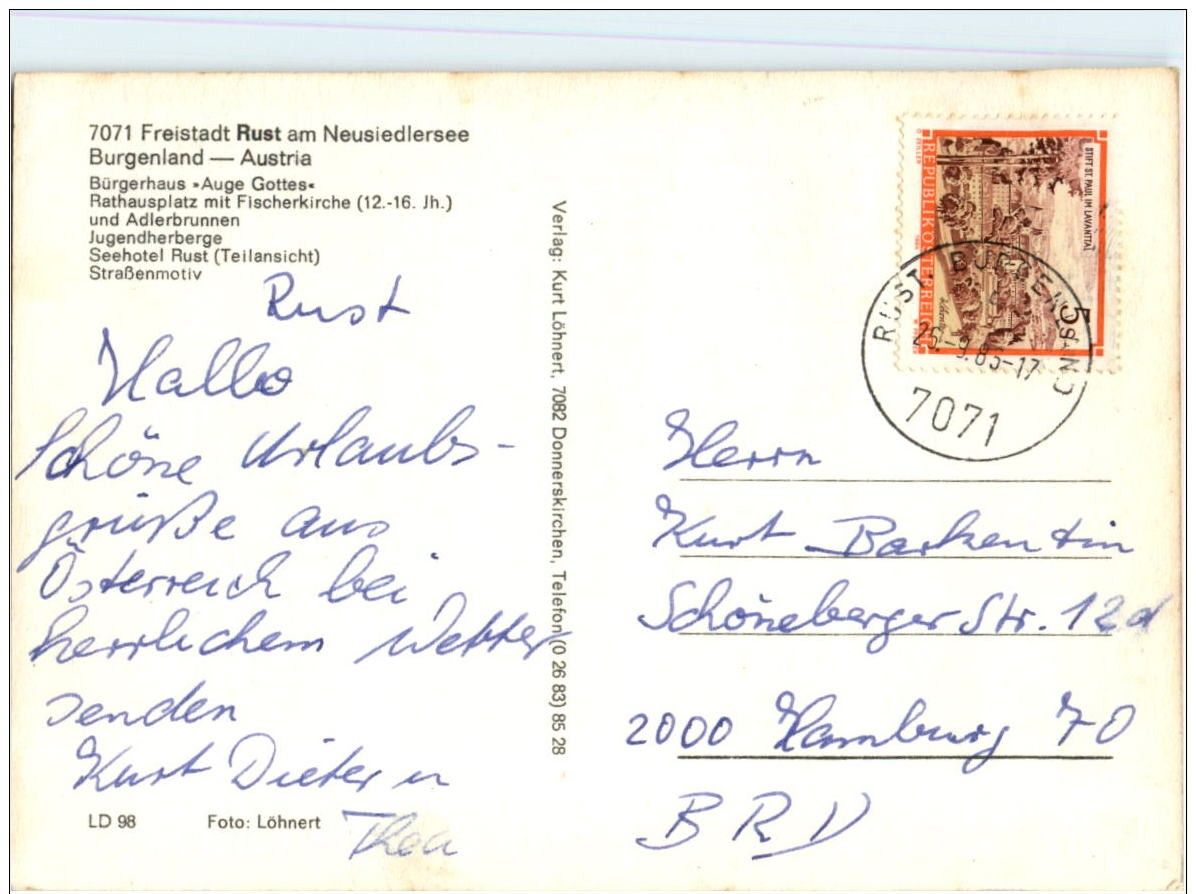 7071 Freistadt Rust am Neusiedlersee
Burgenland — Austria
Bürgerhaus »Auge Gottes«
Rathausplatz mit Fischerkirche (12.-16. Jh.)
und Adlerbrunnen
Jugendherberge
Seehotel Rust (Teilansicht)
Straßenmotiv
Rust
Hallo
Schöne Urlaubs-
grüße aus
Österreich bei
herrlichem Wetter
senden
Kurt Dieter u
Thea
LD 98 Foto: Löhnert
Verlag: Kurt Löhnert, 7082 Donnerskirchen, Telefon (0 26 83) 85 28
REPUBLIK ÖSTERREICH
STIFT ST. PAUL IM LAVANTTAL
5 S
RUST, BURGENLAND
7071
Herrn
Kurt Barkentin
Schöneberger Str. 12d
2000 Hamburg 70
BRD